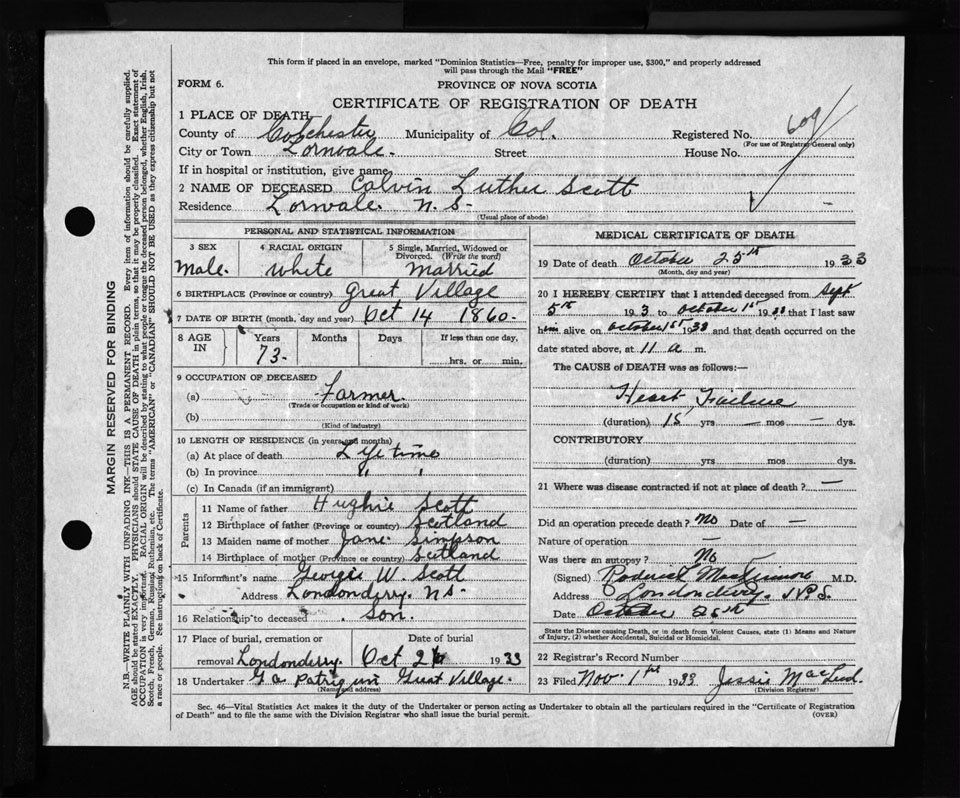 This form if placed in an envelope, marked "Dominion Statistics—Free, penalty for improper use, $300," and properly addressed
will pass through the Mail "FREE"
FORM 6.
PROVINCE OF NOVA SCOTIA
CERTIFICATE OF REGISTRATION OF DEATH
1 PLACE OF DEATH
County of Colchester Municipality of Col. Registered No. 609
(For use of Registrar General only)
City or Town Lornvale. Street House No.
If in hospital or institution, give name
2 NAME OF DECEASED Calvin Luther Scott
Residence Lornvale. N. S.
(Usual place of abode)
PERSONAL AND STATISTICAL INFORMATION
3 SEX 4 RACIAL ORIGIN 5 Single, Married, Widowed or
Divorced. (Write the word)
Male. White Married
6 BIRTHPLACE (Province or country) Great Village
7 DATE OF BIRTH (month, day and year) Oct 14 1860.
8 AGE IN Years Months Days If less than one day,
73- hrs. or min.
9 OCCUPATION OF DECEASED
(a) Farmer.
(Trade or occupation or kind of work)
(b)
(Kind of industry)
10 LENGTH OF RESIDENCE (in years and months)
(a) At place of death Life time
(b) In province " "
(c) In Canada (if an immigrant)
Parents
11 Name of father Hughie Scott
12 Birthplace of father (Province or country) Scotland
13 Maiden name of mother Jane Simpson
14 Birthplace of mother (Province or country) Scotland
15 Informant's name George W. Scott
Address Londonderry. N.S.
16 Relationship to deceased Son.
17 Place of burial, cremation or Date of burial
removal Londonderry. Oct 26 1933
18 Undertaker Great Village.
(Name and address)
MEDICAL CERTIFICATE OF DEATH
19 Date of death October 25th 1933
(Month, day and year)
20 I HEREBY CERTIFY that I attended deceased from Sept
5th 193 to October 1st 1933 that I last saw
him alive on October 1st 1933 and that death occurred on the
date stated above, at 11 a m.
The CAUSE of DEATH was as follows:—
Heart Failure
(duration) 15 yrs — mos — dys.
CONTRIBUTORY
(duration) yrs mos dys.
21 Where was disease contracted if not at place of death? —
Did an operation precede death? No Date of —
Nature of operation —
Was there an autopsy? No
(Signed) Roderick M.D.
Address Londonderry. N.S.
Date October 25th
State the Disease causing Death, or in death from Violent Causes, state (1) Means and Nature
of Injury, (2) whether Accidental, Suicidal or Homicidal.
22 Registrar's Record Number
23 Filed Nov. 1st 1933 Jessie MacLeod.
(Division Registrar)
Sec. 46—Vital Statistics Act makes it the duty of the Undertaker or person acting as Undertaker to obtain all the particulars required in the "Certificate of Registration
of Death" and to file the same with the Division Registrar who shall issue the burial permit. (OVER)
MARGIN RESERVED FOR BINDING
N.B.—WRITE PLAINLY WITH UNFADING INK—THIS IS A PERMANENT RECORD. Every item of information should be carefully supplied.
AGE should be stated EXACTLY. PHYSICIANS should STATE CAUSE OF DEATH in plain terms, so that it may be properly classified. Exact statement of
OCCUPATION is very important. RACIAL ORIGIN will be described by stating to what people or tongue the deceased person belonged, whether English, Irish,
Scotch, French, German, Russian, Ruthenian, etc. The terms "AMERICAN" or "CANADIAN" SHOULD NOT BE USED as they express citizenship but not
a race or people. See instructions on back of Certificate.